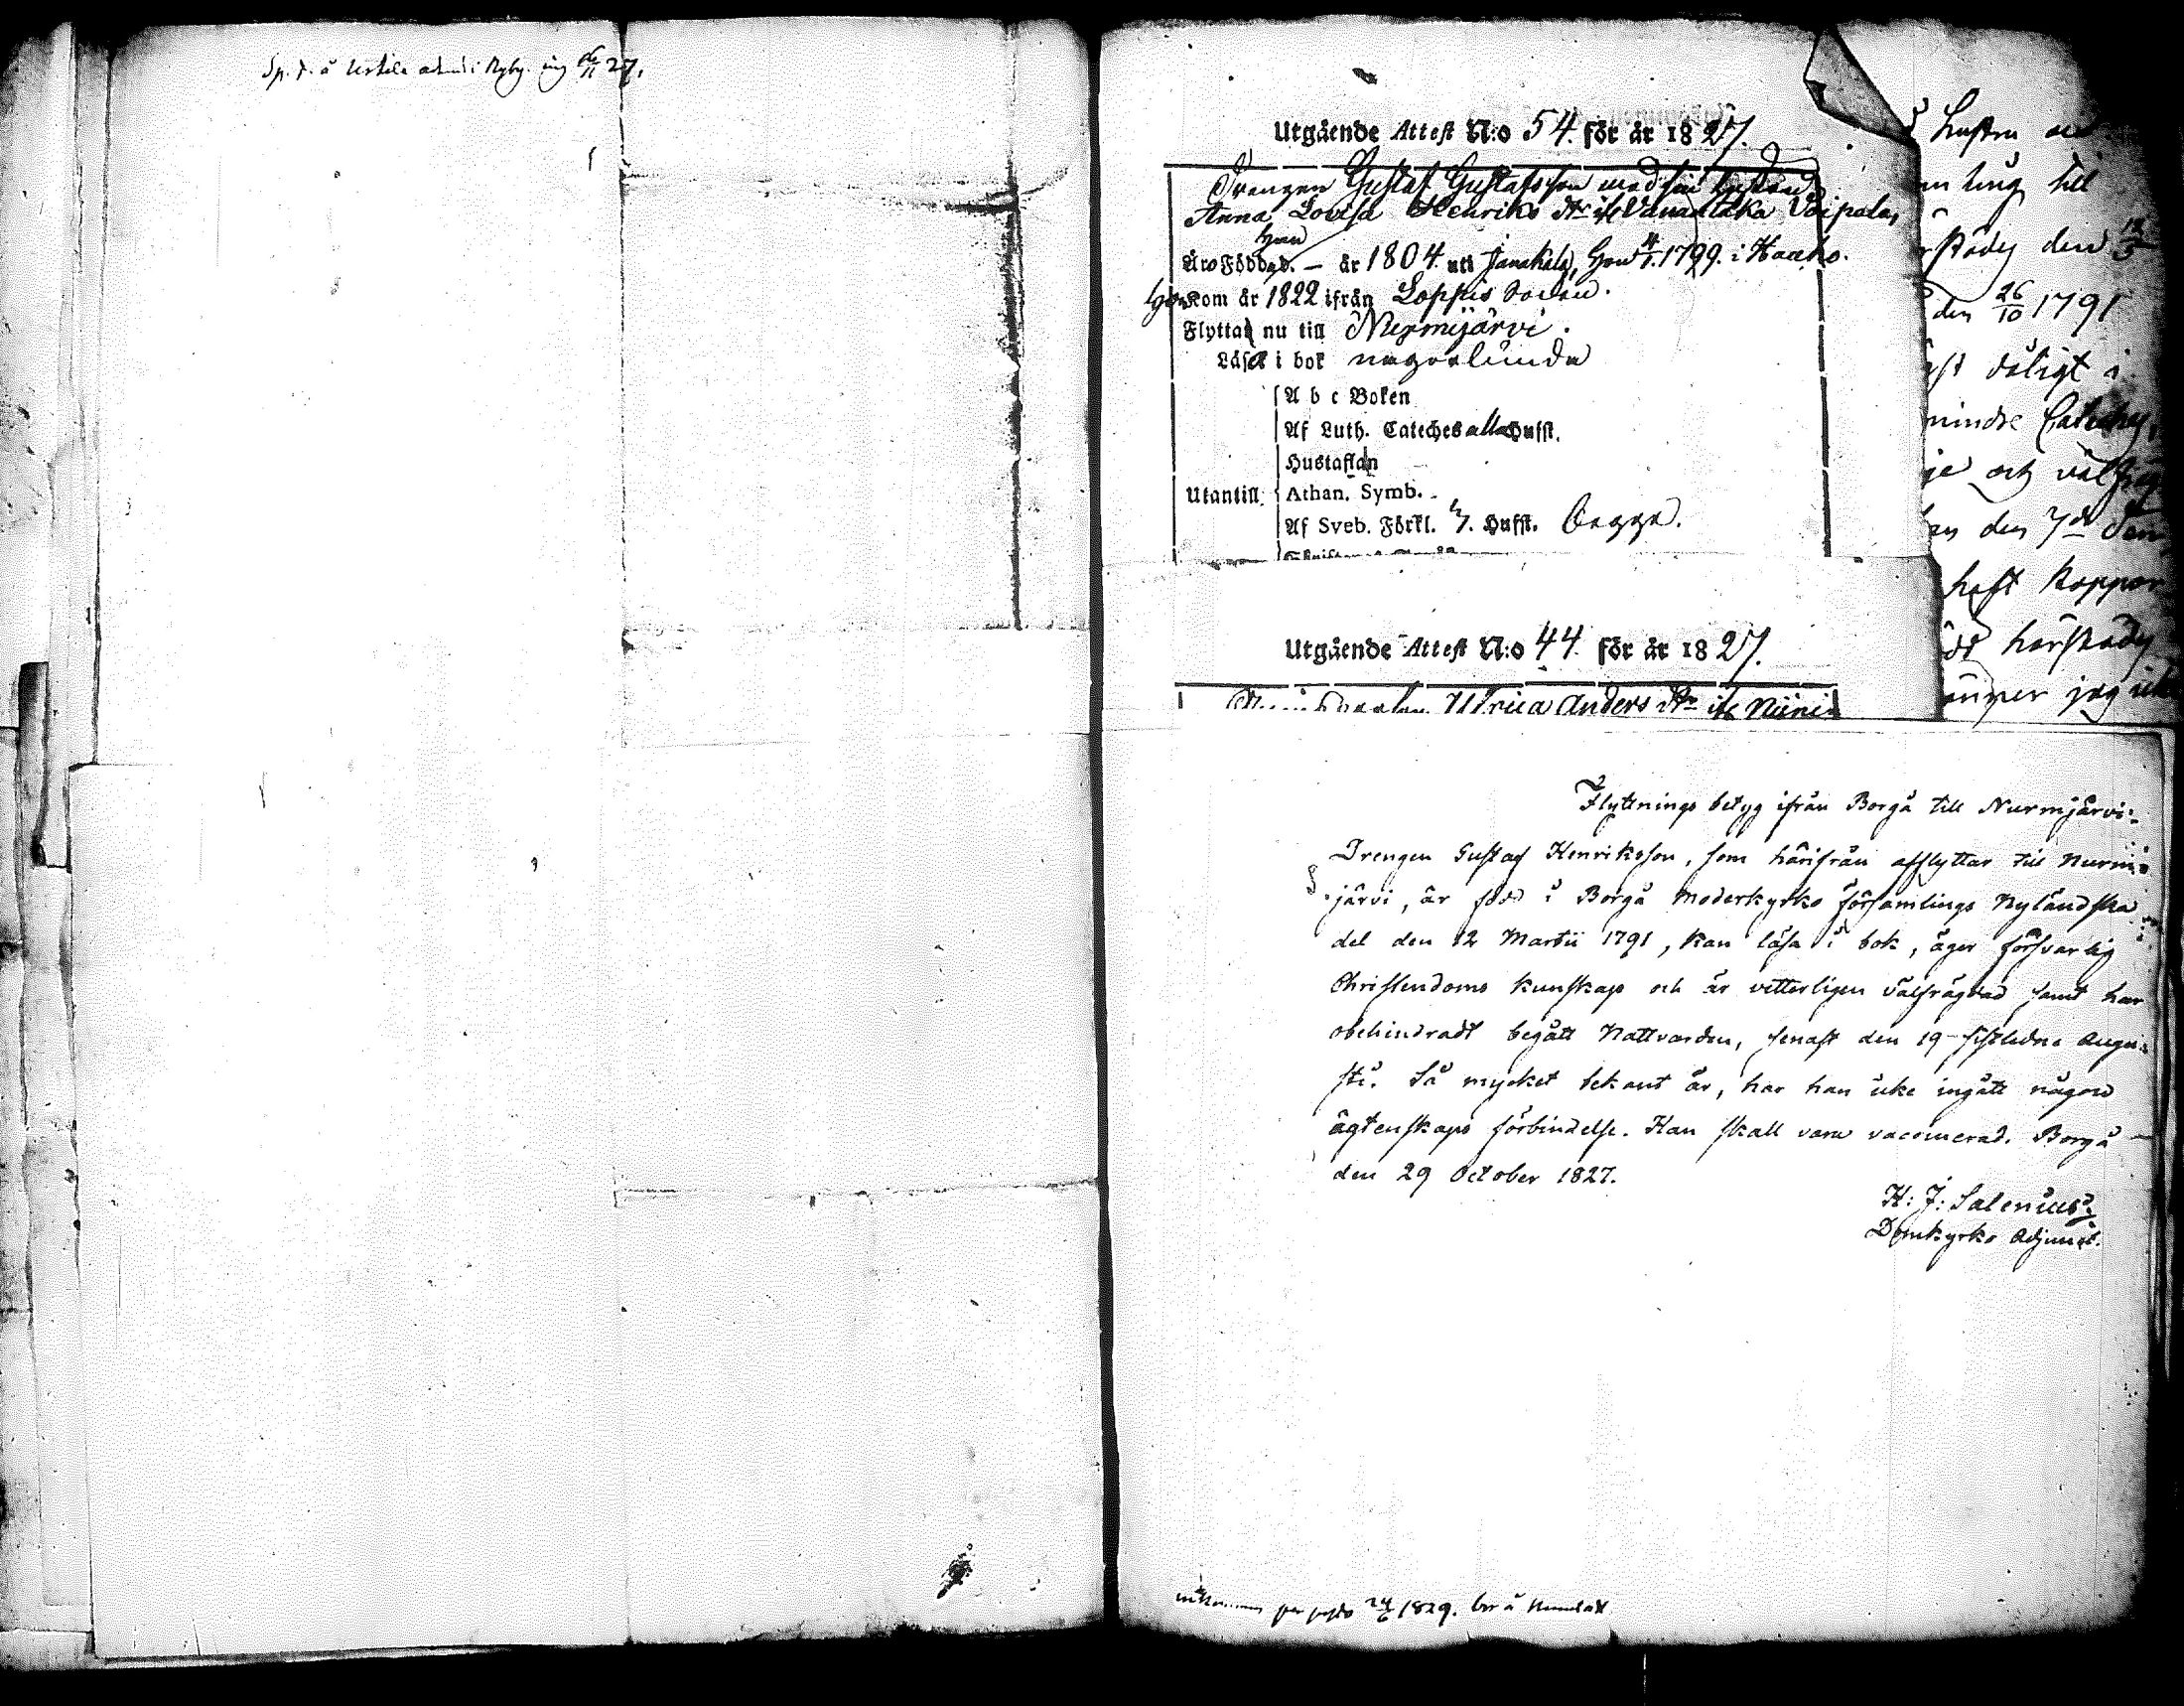 Utgående Attest N:o 54. för år 1827.
Drengen Gustaf Gustafsson med sin hustru
Anna Lovisa Henriks dr if Vanantaka Voipala,
han
Äro Födda d. – år 1804. uti Janakala, Hon 4/1. 1799. i Haaho.
Hon kom år 1822 ifrån Loppis Socken.
Flytta nu till Nurmijärvi.
Läsa i bok någorlunda
A b c Boken
Af Luth. Cateches alla Hufst.
Hustaflan
Utantill Athan. Symb.
Af Sveb. Förkl. Hufst. begge.
Utgående Attest N:o 44. för år 1827.
Ulrica Anders dr if
hustru
till
den 12/3
den 26/10 1791
dåligt i
mindre Cateches
och välfräg
den 7de
haft koppor
härstädes
jag
Flyttnings betyg ifrån Borgå till Nurmjärvi:
Drengen Gustaf Henriksson, som härifrån afflyttar till Nurmi-
järvi, är född i Borgå Moderkyrko församlings Nyländska
del den 12 Martii 1791, kan läsa i bok, äger försvarlig
Christendoms kunskap och är vitterligen välfrägdad samt har
obehindradt begått Nattvarden, senast den 19 sistledne Augu-
sti. Så mycket bekant är, har han icke ingått någon
ägtenskaps förbindelse. Han skall vara vaccinerad. Borgå
den 29 October 1827.
H: J: Salenius
Domkyrko Adjunct.
1829. bor å